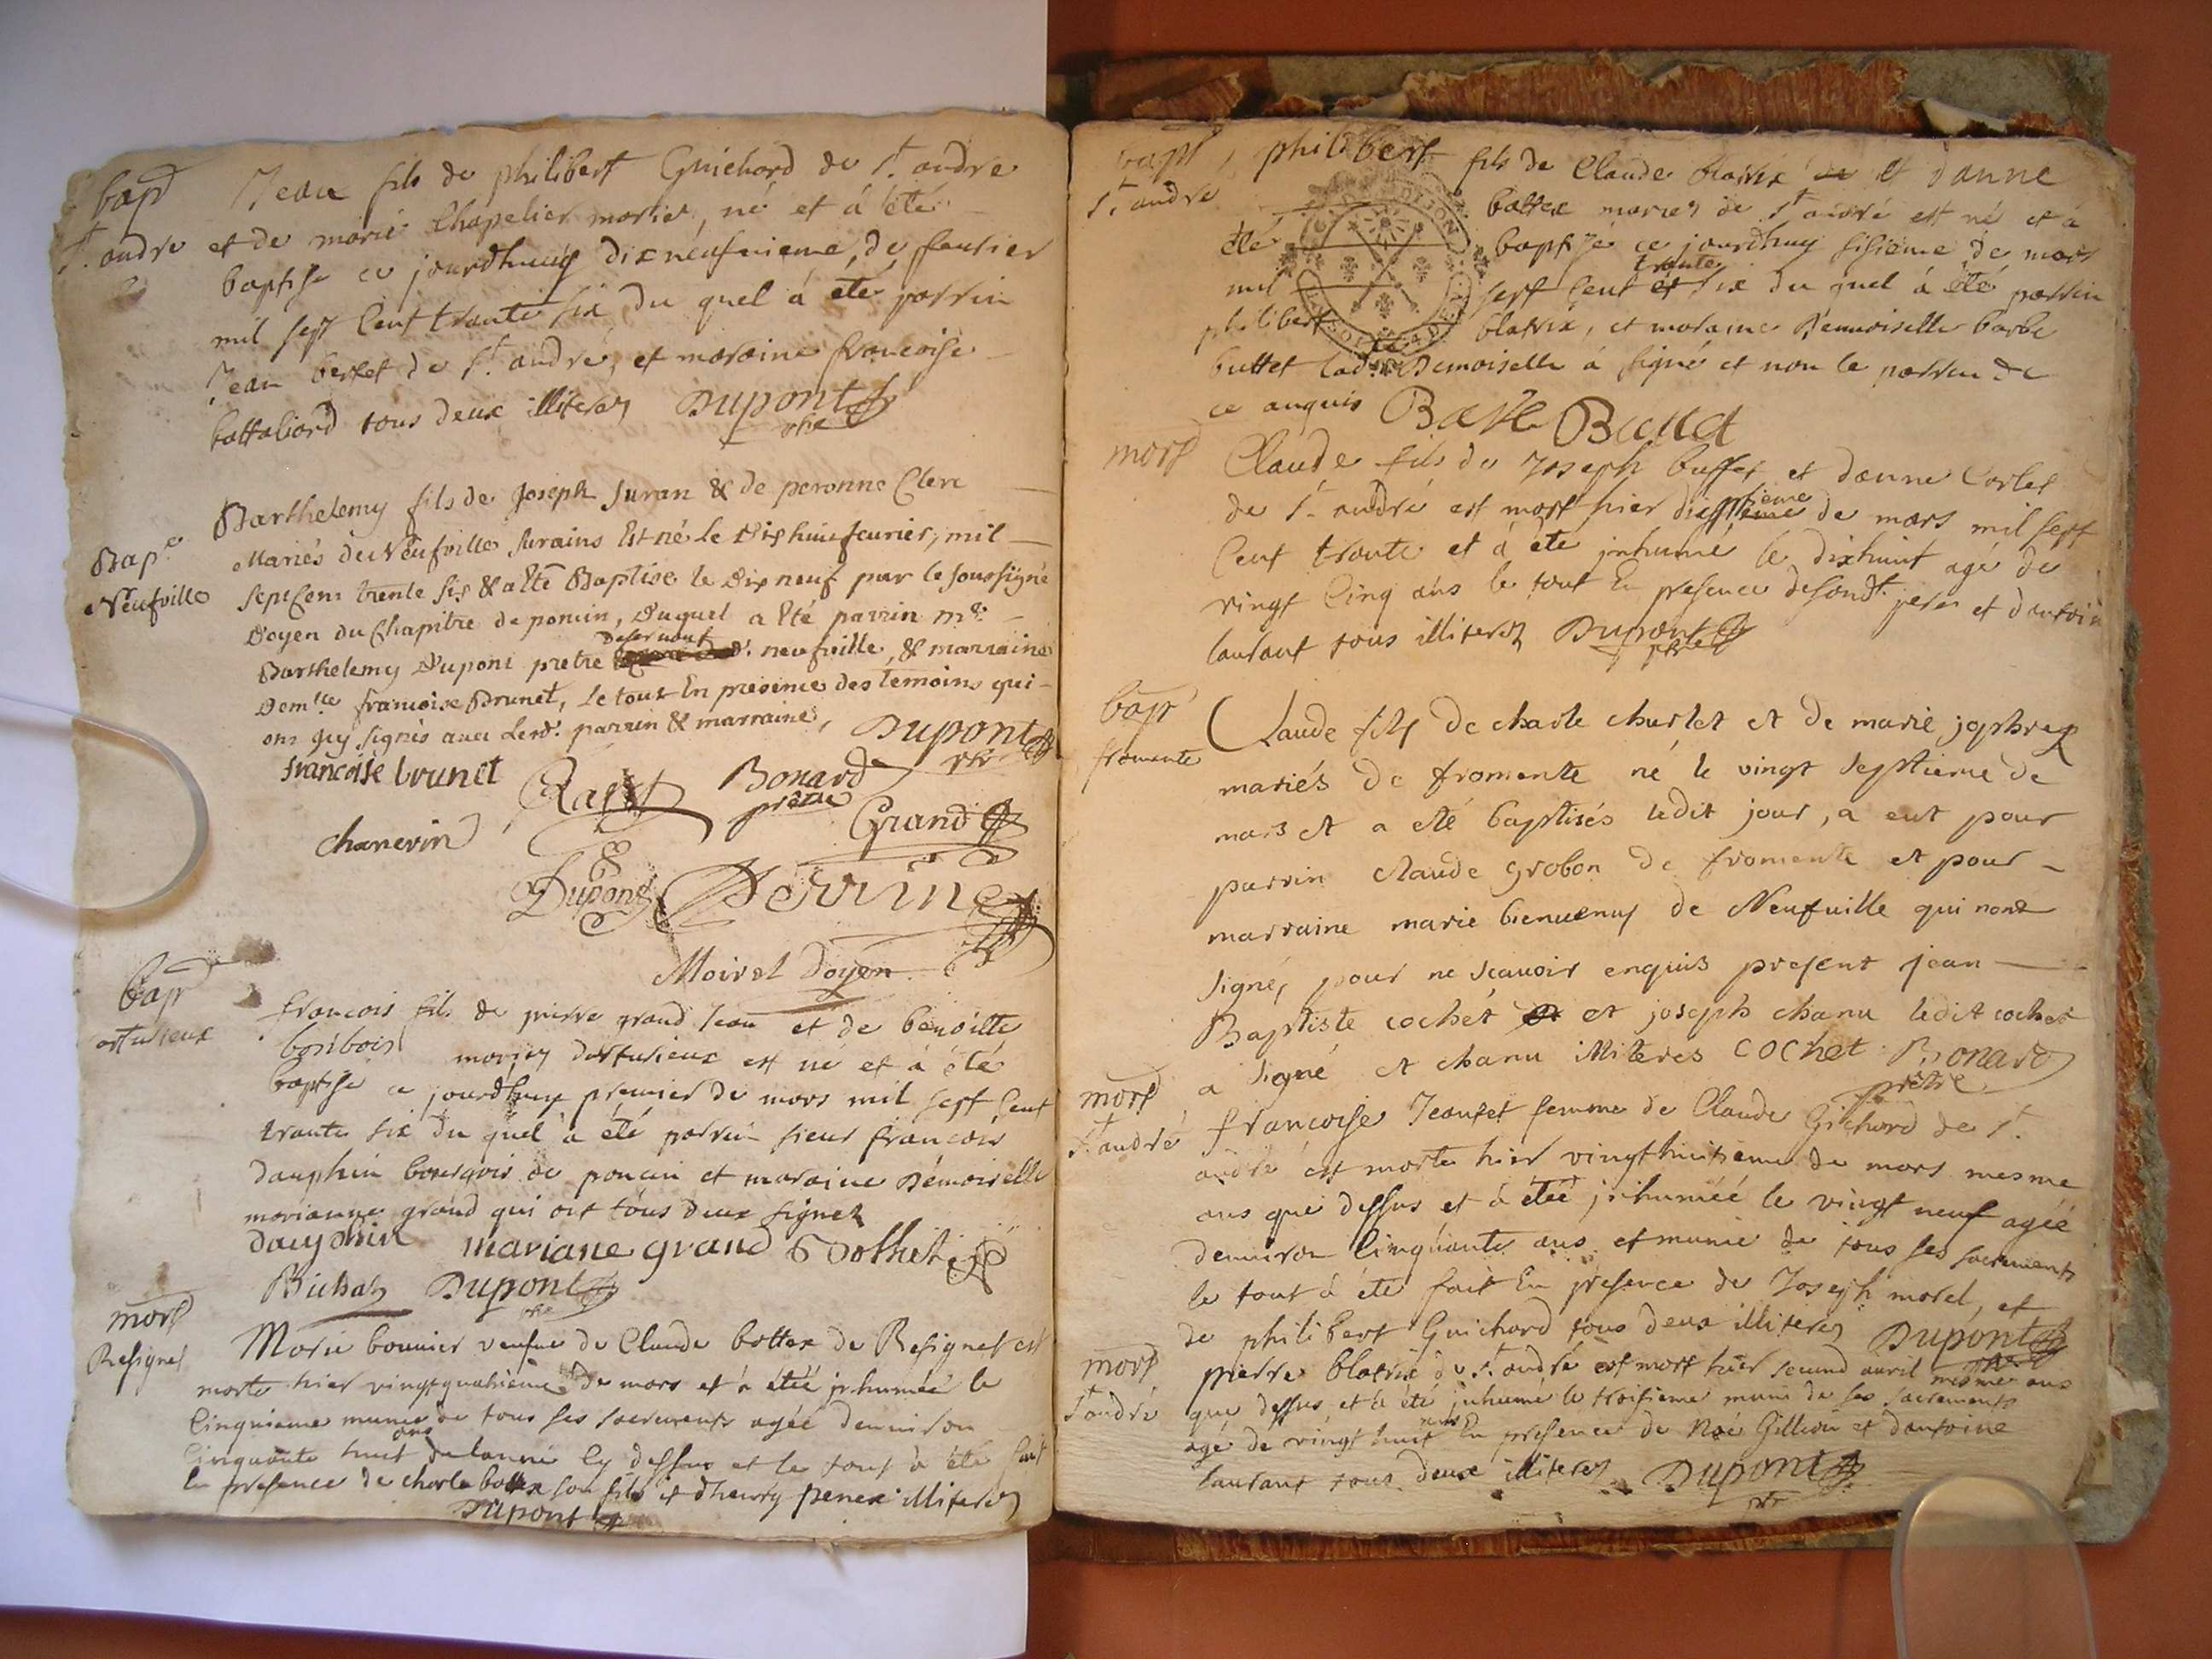 bapt Jean fils de philibert Guichard de St. andre
St. andre et de marie Chapelier mariés, né et à été
baptisé ce jourdhuiy dixneufuieme de feurier
mil sept Cent trante six du quel à été parrin
Jean bertet de St. andré, et maraine francoise
battaliard tous deux illiteres Dupont
ptre
Barthelemy fils de Joseph Juran & de peronne Clerc
Bap.e Mariés de Neufville surains Est né Le Dixhuit feurier, mil
Neufville sept Cent trente six & a Eté Baptisé le Dix neuf par le soussigné
Doyen du Chapitre de poncin, Duquel a Eté parrin mr.
deseruant
Barthelemy Dupont pretre neufville, & marraine
Dem.lle francoise Brunet, Le tout En presence des temoins qui
ont icy signés auec Lesd. parrin & marraine, Dupont
ptre
francoise brunet Bonard
pretre
chanerin Grand
Dupont Perrinet
Moirel Doyen
bapt francois fils de pierre grand Jean et de benoitte
bonbois mariez dartusieux est né et à été
baptisé ce jourdhuy premier de mars mil sept Cent
trante six du quel à été parrin sieur francois
dauphin bourgois de poncin et maraine Demoiselle
marianne grand qui ont tous deux signez
dauphin mariane grand
Dupont
ptre
mort Marie bouuier veufue de Claude bottex de Resignel est
Resignel morte hier vingtquatrieme de mars et à étéé jnhuméé le
Cinquieme munie de tous ses sacrements agéé denuiron
ans
Cinquante huit de lanné Cy dessus et le tout à été fait
En presence de charle bottex son fils et dhenry penex illiteres
Dupont
bapt philibert fils de Claude blatrix et danne
St. andre bottex mariez de St andré est né et à
été baptisé ce jourdhuy sisieme de mars
trante
mil sept Cent six du quel à été parrin
philibert blatrix, et maraine Demoiselle barbe
buttet lad. Demoiselle à signé et non le parrin de
ce anquis Barbe Buttet
mort Claude fils de Joseph buffet et danne Corlet
de St. andré est mort hier de mars mil sept
Cent trante et à été jnhumé le dixhuit agé de
vingt Cinq ans le tout En presence de sondt. pere et dantoine
laurant tous illiteres Dupont
ptre
bapt Claude fils de charle charlet et de marie
fromente mariés de fromente né le vingt septieme de
mars et a eté baptisés ledit jour, a eut pour
parrin claude grobon de fromente et pour
marraine marie bienuenuz de Neufuille qui nont
signé, pour ne scauoir enquis present jean
Baptiste cochet et joseph chanu ledit cochet
a signé et chanu illiteres cochet Bonard
prêtre
mort francoise Jeantet femme de Claude Gichard de St.
St. andré andré est morte hier vingthuitieme de mars mesme
ans que dessus et à étéé jnhuméé le vingt neuf agéé
denuiron Cinquante ans et munie de tous ses sacrements
le tout à été fait En presence de Joseph morel, et
de philibert Guichard tous deux illiteres Dupont
ptre
mort pierre blatrix de St. andré est mort hier second auril mesme ans
St andré que dessus et à été jnhumé le troisieme muni de ses sacrements
ans
agé de vingt huit En presence de Noé Gillion et dantoine
laurant tous deux illiteres Dupont
ptre